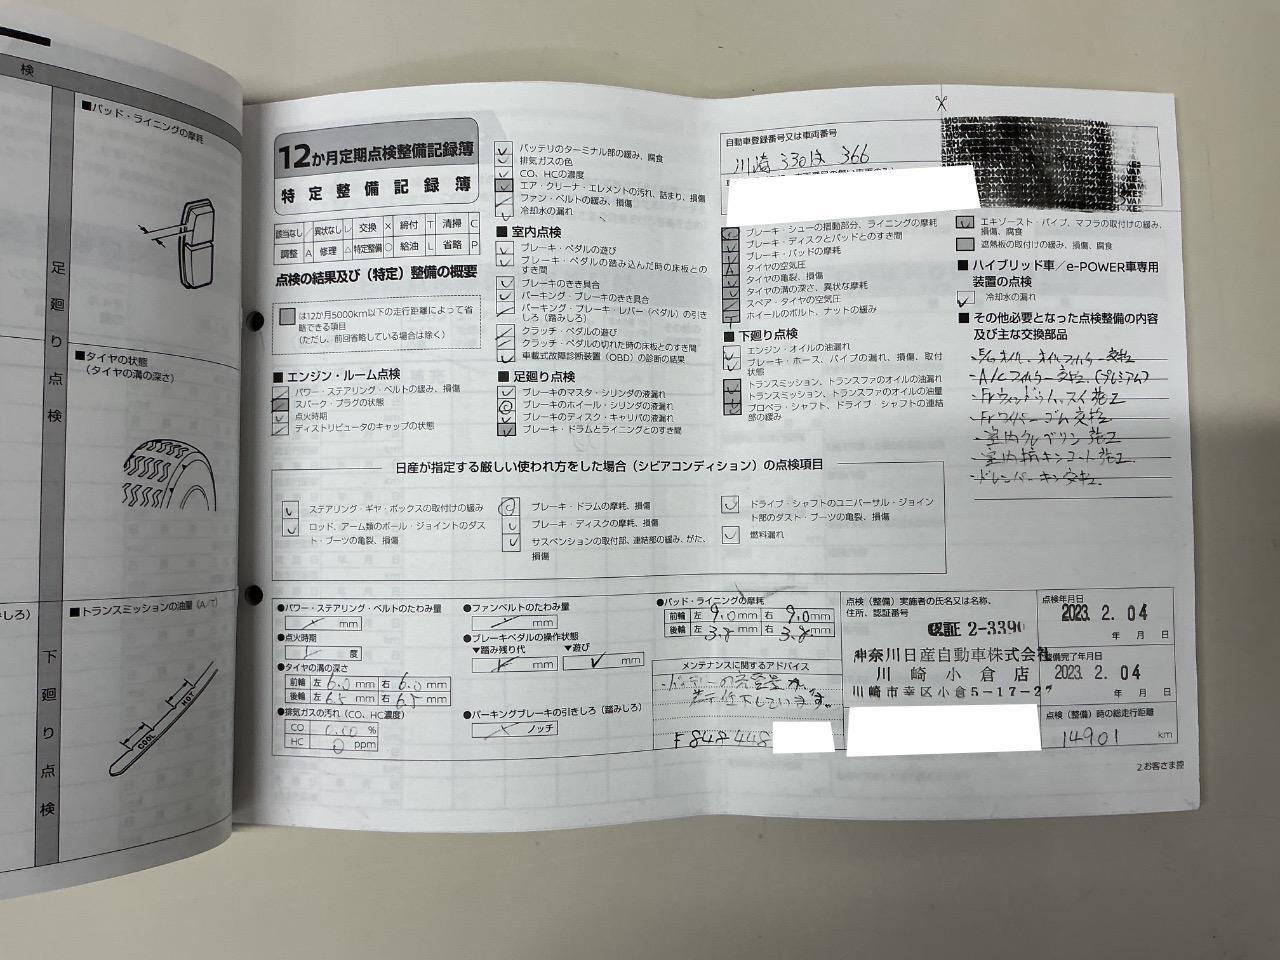 検
■パッド・ライニングの摩耗
足廻り点検
■タイヤの状態
(タイヤの溝の深さ)
■トランスミッションの油量(A/T)
下廻り点検
HOT
COOL
12か月定期点検整備記録簿
特定整備記録簿
該当なし / 異状なし レ 交換 × 締付 T 清掃 C
調整 A 修理 △ 特定整備 ○ 給油 L 省略 P
点検の結果及び(特定)整備の概要
は12か月5000km以下の走行距離によって省略できる項目
(ただし、前回省略している場合は除く)
■エンジン・ルーム点検
パワー・ステアリング・ベルトの緩み、損傷
スパーク・プラグの状態
点火時期
ディストリビュータのキャップの状態
バッテリのターミナル部の緩み、腐食
排気ガスの色
CO、HCの濃度
エア・クリーナ・エレメントの汚れ、詰まり、損傷
ファン・ベルトの緩み、損傷
冷却水の漏れ
■室内点検
ブレーキ・ペダルの遊び
ブレーキ・ペダルの踏み込んだ時の床板とのすき間
ブレーキのきき具合
パーキング・ブレーキのきき具合
パーキング・ブレーキ・レバー(ペダル)の引きしろ(踏みしろ)
クラッチ・ペダルの遊び
クラッチ・ペダルの切れた時の床板とのすき間
車載式故障診断装置(OBD)の診断の結果
■足廻り点検
ブレーキのマスタ・シリンダの液漏れ
ブレーキのホイール・シリンダの液漏れ
ブレーキのディスク・キャリパの液漏れ
ブレーキ・ドラムとライニングとのすき間
自動車登録番号又は車両番号
川崎 330 ほ 366
ブレーキ・シューの摺動部分、ライニングの摩耗
ブレーキ・ディスクとパッドとのすき間
ブレーキ・パッドの摩耗
タイヤの空気圧
タイヤの亀裂、損傷
タイヤの溝の深さ、異状な摩耗
スペア・タイヤの空気圧
ホイールのボルト、ナットの緩み
■下廻り点検
エンジン・オイルの油漏れ
ブレーキ・ホース、パイプの漏れ、損傷、取付状態
トランスミッション、トランスファのオイルの油漏れ
トランスミッション、トランスファのオイルの油量
プロペラ・シャフト、ドライブ・シャフトの連結部の緩み
エキゾースト・パイプ、マフラの取付けの緩み、損傷、腐食
遮熱板の取付けの緩み、損傷、腐食
■ハイブリッド車/e-POWER車専用装置の点検
冷却水の漏れ
■その他必要となった点検整備の内容及び主な交換部品
E/Gオイル、オイルフィルター交換
A/Cフィルター交換(プレミアム)
Frワイパーゴム交換
室内クレベリン施工
室内抗キンコート施工
ドレンパッキン交換
日産が指定する厳しい使われ方をした場合(シビアコンディション)の点検項目
ステアリング・ギヤ・ボックスの取付けの緩み
ロッド、アーム類のボール・ジョイントのダスト・ブーツの亀裂、損傷
ブレーキ・ドラムの摩耗、損傷
ブレーキ・ディスクの摩耗、損傷
サスペンションの取付部、連結部の緩み、がた、損傷
ドライブ・シャフトのユニバーサル・ジョイント部のダスト・ブーツの亀裂、損傷
燃料漏れ
●パワー・ステアリング・ベルトのたわみ量
mm
●点火時期
度
●タイヤの溝の深さ
前輪 左 6.0 mm 右 6.0 mm
後輪 左 6.5 mm 右 6.5 mm
●排気ガスの汚れ(CO、HC濃度)
CO 0.00 %
HC 0 ppm
●ファンベルトのたわみ量
mm
●ブレーキペダルの操作状態
▼踏み残り代 ▼遊び
mm mm
●パーキングブレーキの引きしろ(踏みしろ)
ノッチ
●パッド・ライニングの摩耗
前輪 左 9.0 mm 右 9.0 mm
後輪 左 3.8 mm 右 3.8 mm
メンテナンスに関するアドバイス
バッテリーの充電量が
若干低下しています。
点検(整備)実施者の氏名又は名称、住所、認証番号
認証 2-3390
神奈川日産自動車株式会社
川崎小倉店
川崎市幸区小倉5-17-27
点検年月日
2023. 2. 04
年 月 日
整備完了年月日
2023. 2. 04
年 月 日
点検(整備)時の総走行距離
14901 km
2.お客さま控